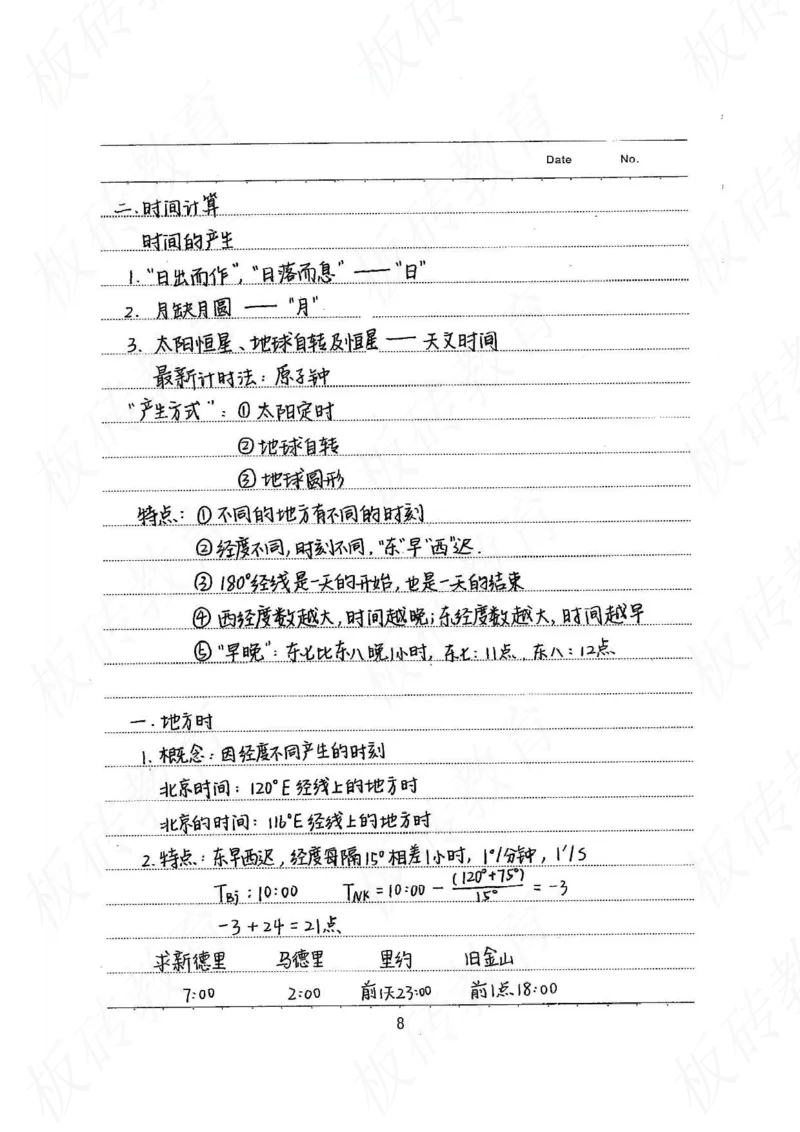 Date No.
二.时间计算
时间的产生
1."日出而作","日落而息" —— "日"
2. 月缺月圆 —— "月"
3. 太阳恒星、地球自转及恒星 —— 天文时间
最新计时法：原子钟
"产生方式"：① 太阳定时
② 地球自转
③ 地球圆形
特点：① 不同的地方有不同的时刻
② 经度不同,时刻不同,"东"早"西"迟.
③ 180°经线是一天的开始,也是一天的结束
④ 西经度数越大,时间越晚;东经度数越大,时间越早
⑤ "早晚"：东七比东八晚1小时, 东七：11点, 东八：12点
一.地方时
1.概念：因经度不同产生的时刻
北京时间：120°E 经线上的地方时
北京的时间：116°E 经线上的地方时
2.特点：东早西迟,经度每隔15°相差1小时, 1°/分钟, 1'/s
TBJ：10:00 TNK = 10:00 - (120°+75°)/15° = -3
-3+24=21点
求新德里 马德里 里约 旧金山
7:00 2:00 前1天23:00 前1点18:00
8
板砖教育